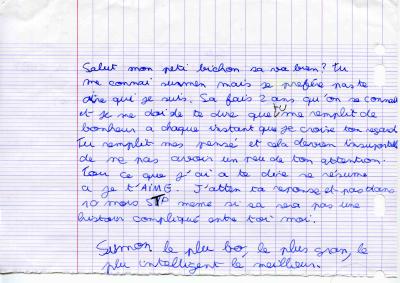 Salut mon peti bichon sa va bien? Tu
me connai surmen mais je préfère pas te
dire qui je suis. Sa fais 2 ans qu'on se connai
et je me doi de te dire que TU me remplit de
bonheur a chaque instant que je croise ton regard
Tu remplit mes pensé et cela devien insuportable
de ne pas avoir un peu de ton attention.
Tou ce que j'ai a te dire se résume
a je t'AIME. J'atten ta reponse et pas dans
10 mois STP meme si sa sera pas une
histoir compliqué entre toi moi.
Simon le plu bo, le plus gran, le
plu intelligent le meilleur.